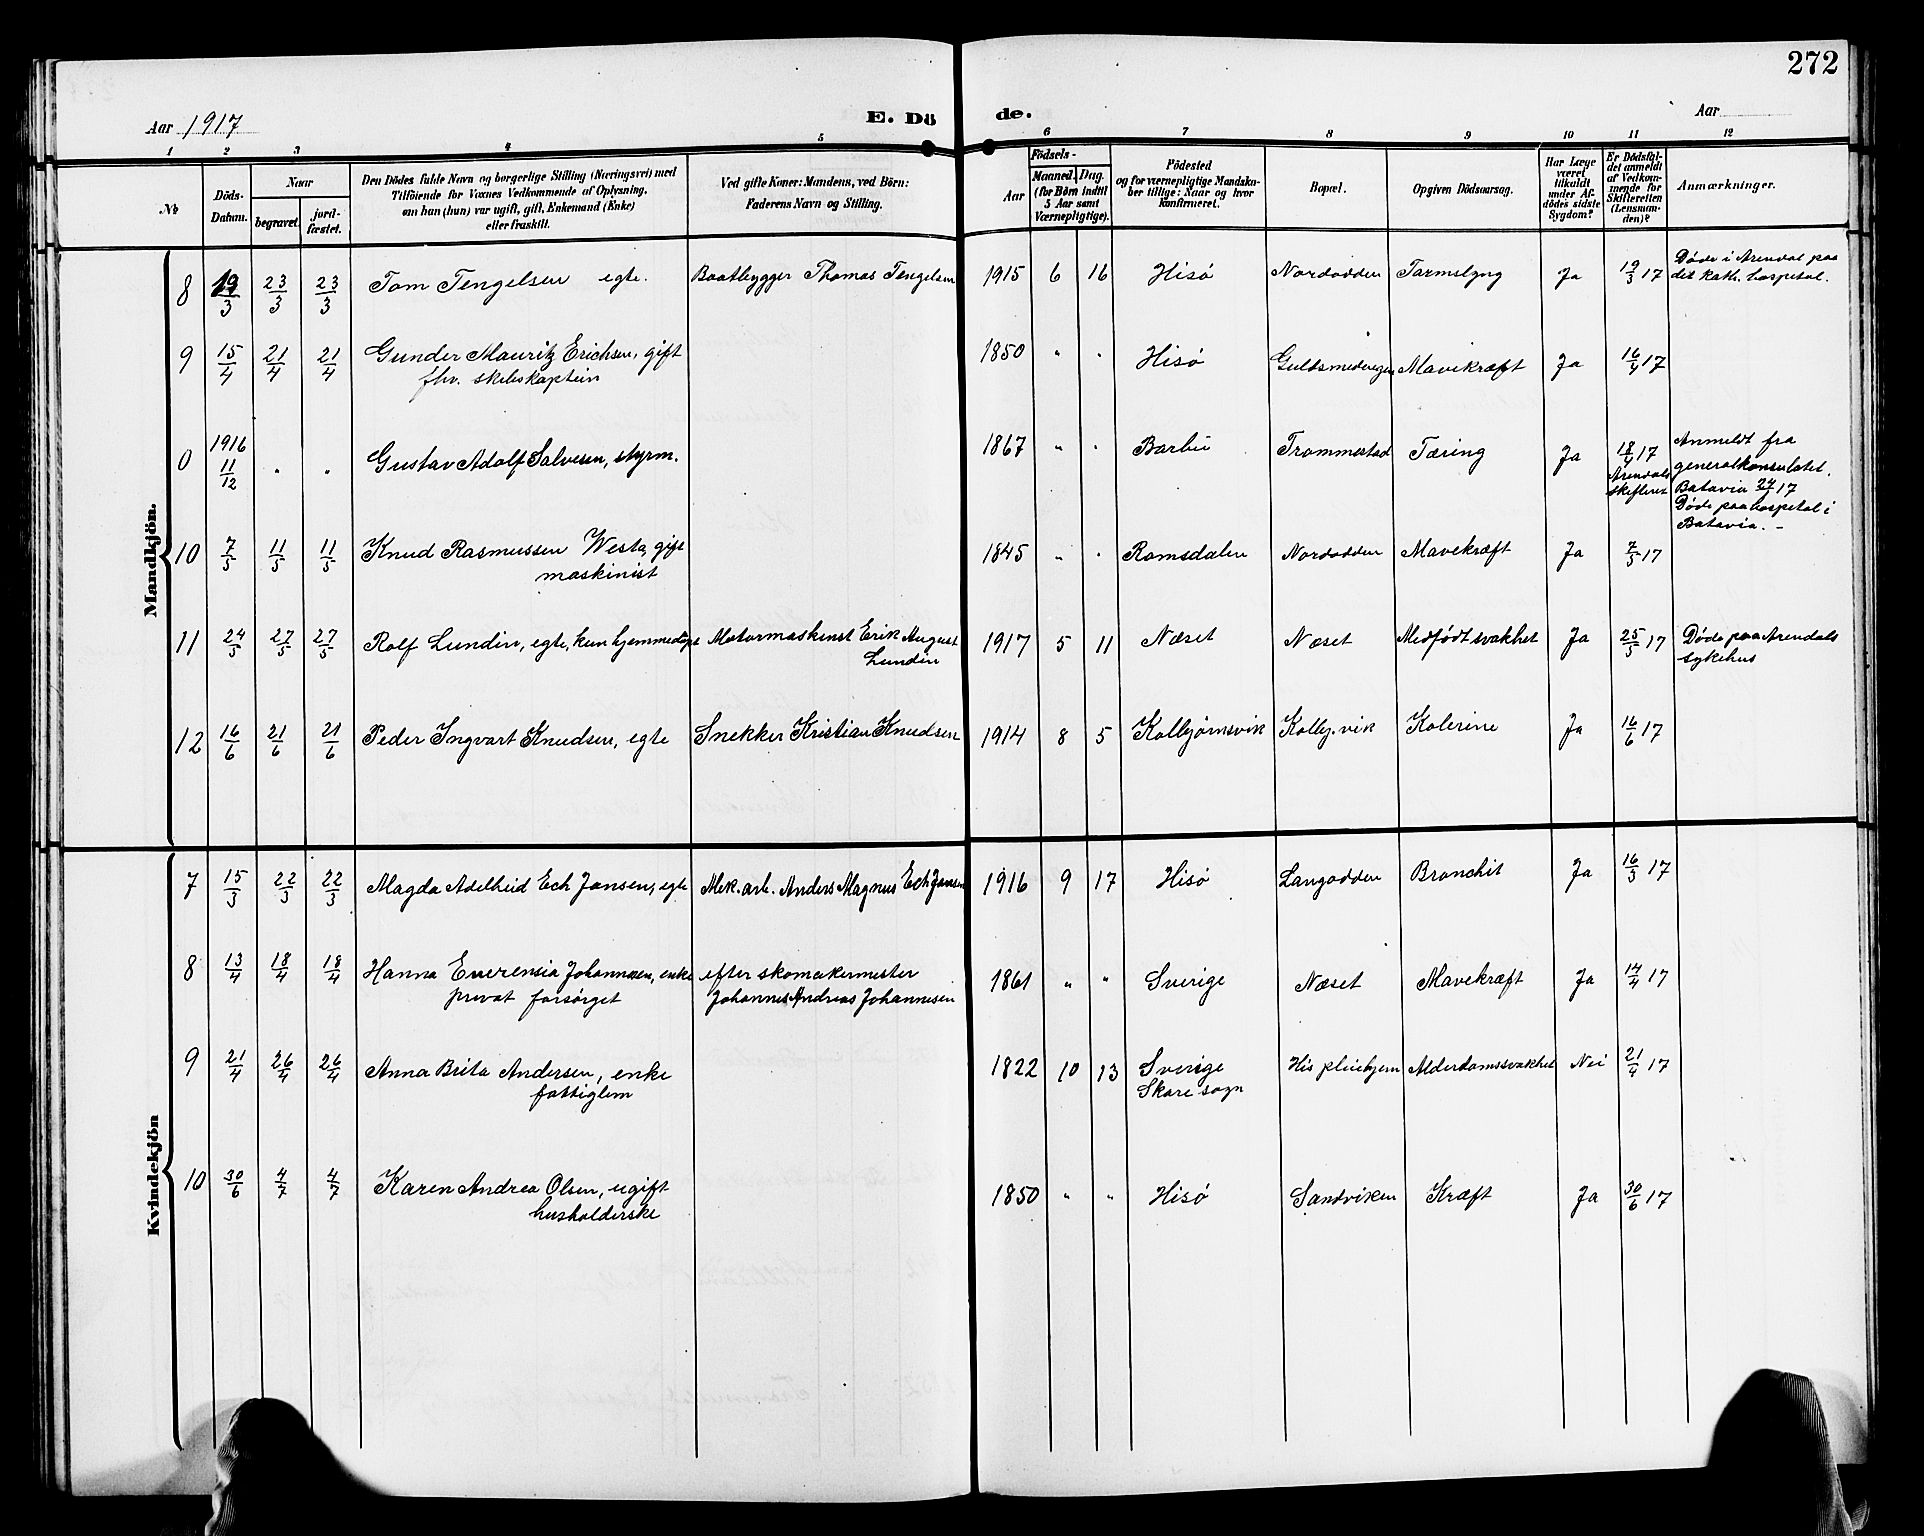 272
Aar 1917 E. Dö de. Aar
1 2 3 4 5 6 7 8 9 10 11 12
№
Döds-Datum.
Naar
begravet.
jord-fæstet.
Den Dödes fulde Navn og borgerlige Stilling (Næringsvei) med
Tilföiende for Voxnes Vedkommende af Oplysning,
om han (hun) var ugift, gift, Enkemand (Enke)
eller fraskilt.
Ved gifte Koner: Mandens, ved Börn:
Faderens Navn og Stilling.
Födsels-
Aar
Maaned. Dag.
(for Börn indtil
5 Aar samt
Værnepligtige).
Födested
og for værnepligtige Mandska-
ber tillige: Naar og hvor
konfirmeret.
Bopæl.
Opgiven Dödsaarsag.
Har Læge
været
tilkaldt
under Af-
dödes sidste
Sygdom?
Er Dödsfal-
det anmeldt
af Vedkom-
mende for
Skifteretten
(Lensman-
den)?
Anmærkninger.
Mandkjön.
8 19/3 23/3 23/3 Tom Tengelsen egte. Baatbygger Thomas Tengelsen 1915 6 16 Hisö Nordodden Tarmslyng Ja 19/3 17 Døde i Arendal paa
det kath. hospital.
9 15/4 21/4 21/4 Gunder Mauritz Erichsen, gift 1850 " " Hisö Guldsmedvegen Mavekræft Ja 16/4 17
fhv. skibskaptein
0 1916 11/12 " " Gustav Adolf Salvesen, styrm. 1867 " " Barbu Trommestad Tæring Ja 18/4 17
Arendals
skifteret
Anmeldt fra
generalkonsulatet.
Batavia 17
Døde paa hospital i
Batavia. -
10 7/5 11/5 11/5 Knud Rasmussen Westa, gift 1845 " " Romsdalen Nordodden Mavekræft Ja 7/5 17
maskinist
11 24/5 27/5 27/5 Rolf Lundin, egte, kun hjemmedøpt Motormaskinist Erik August 1917 5 11 Næset Næset Medfödt svakhet Ja 25/5 17 Døde paa Arendals
Lundin sykehus
12 16/6 21/6 21/6 Peder Ingvart Knudsen, egte Snekker Kristian Knudsen 1914 8 5 Kolbjørnsvik Kolbj.vik Kolerine Ja 16/6 17
Kvindekjön
7 15/3 22/3 22/3 Magda Adelheid Ech Jansen, egte Mek. arb. Anders Magnus Ech Jansen 1916 9 17 Hisö Langodden Bronchit Ja 16/3 17
8 13/4 18/4 18/4 Hanna Everensia Johannesen, enke efter skomakermester 1861 " " Sverige Næset Mavekræft Ja 14/4 17
privat forsørget Johannes Andreas Johannesen
9 21/4 26/4 26/4 Anna Brita Andersen, enke 1822 10 13 Sverige His pleiehjem Alderdomssvakhet Nei 21/4 17
fattiglem Skare sogn
10 30/6 4/7 4/7 Karen Andrea Olsen, ugift 1850 " " Hisö Sandviken Kræft Ja 30/6 17
husholderske